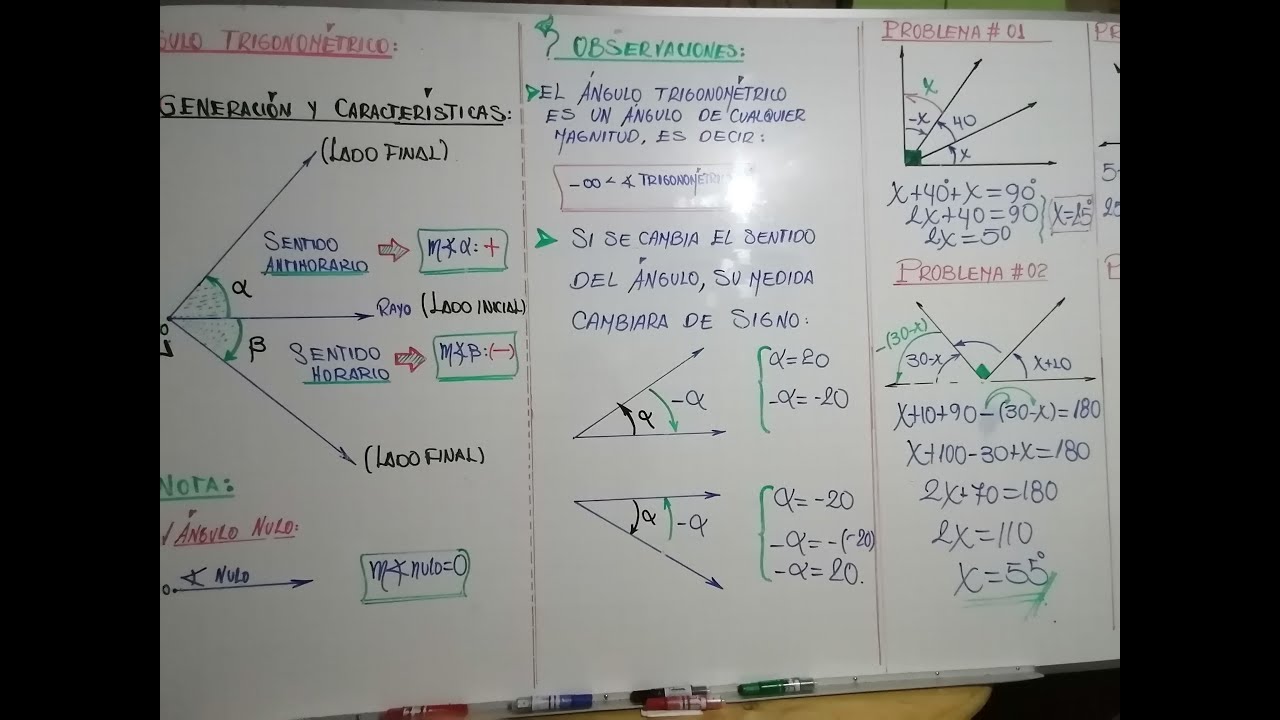 GULO TRIGONOMÉTRICO:
GENERACIÓN Y CARACTERÍSTICAS:
(LADO FINAL)
SENTIDO
ANTIHORARIO
m∡α: +
α
RAYO (LADO INICIAL)
O
β
SENTIDO
HORARIO
m∡β: (-)
(LADO FINAL)
NOTA:
√ ÁNGULO NULO:
∡ NULO
O
m∡nulo=0
OBSERVACIONES:
EL ÁNGULO TRIGONOMÉTRICO
ES UN ÁNGULO DE CUALQUIER
MAGNITUD, ES DECIR:
-∞ < ∡ TRIGONOMÉTRI
SI SE CAMBIA EL SENTIDO
DEL ÁNGULO, SU MEDIDA
CAMBIARA DE SIGNO:
α
-α
α=20
-α=-20
α
-α
α=-20
-α=-(-20)
-α=20.
PROBLEMA # 01
x
-x
40
x
x+40°+x=90°
2x+40=90
2x=50
x=25°
PROBLEMA #02
-(30-x)
30-x
x+10
x+10+90-(30-x)=180
x+100-30+x=180
2x+70=180
2x=110
x=55°
PR
5
25
P